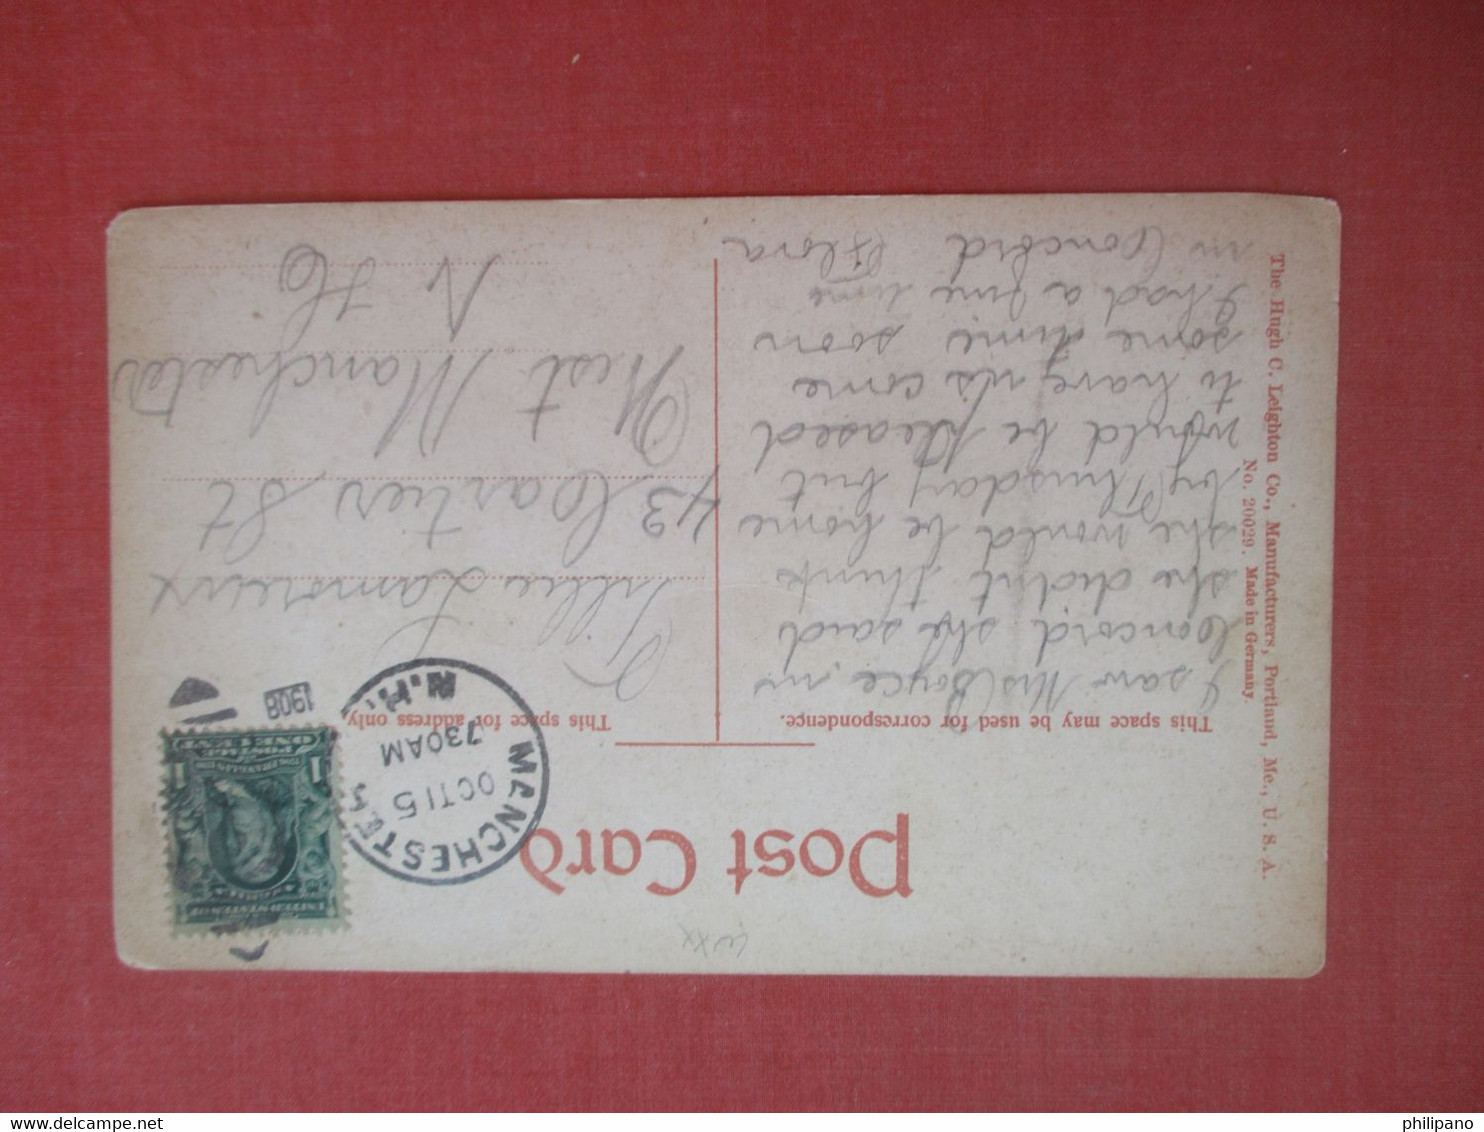 Post Card
This space may be used for correspondence.
This space for address only.
I saw Mrs Boyce in
Concord she said
she didn't think
she would be home
by Thursday but
would be pleased
to have us come
some time soon
I had a fine time
in Concord Flora
Tillie Lamoreux
43 Cartier St
West Manchester
N H
MANCHESTER
N.H.
OCT 15
730AM
1908
UNITED STATES OF
AMERICA
1 1
POSTAGE
ONE CENT
The Hugh C. Leighton Co., Manufacturers, Portland, Me., U. S. A.
No. 20029. Made in Germany.
philipano